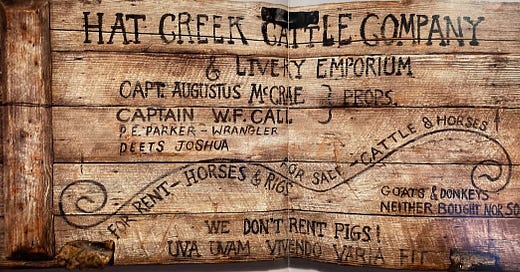 HAT CREEK CATTLE COMPANY
& LIVERY EMPORIUM
CAPT. AUGUSTUS McCRAE } PROPS.
CAPTAIN W.F. CALL
P.E. PARKER - WRANGLER
DEETS JOSHUA
FOR RENT - HORSES & RIGS
FOR SALE - CATTLE & HORSES
GOATS & DONKEYS
NEITHER BOUGHT NOR SO
WE DON'T RENT PIGS!
UVA UVAM VIVENDO VARIA FIT